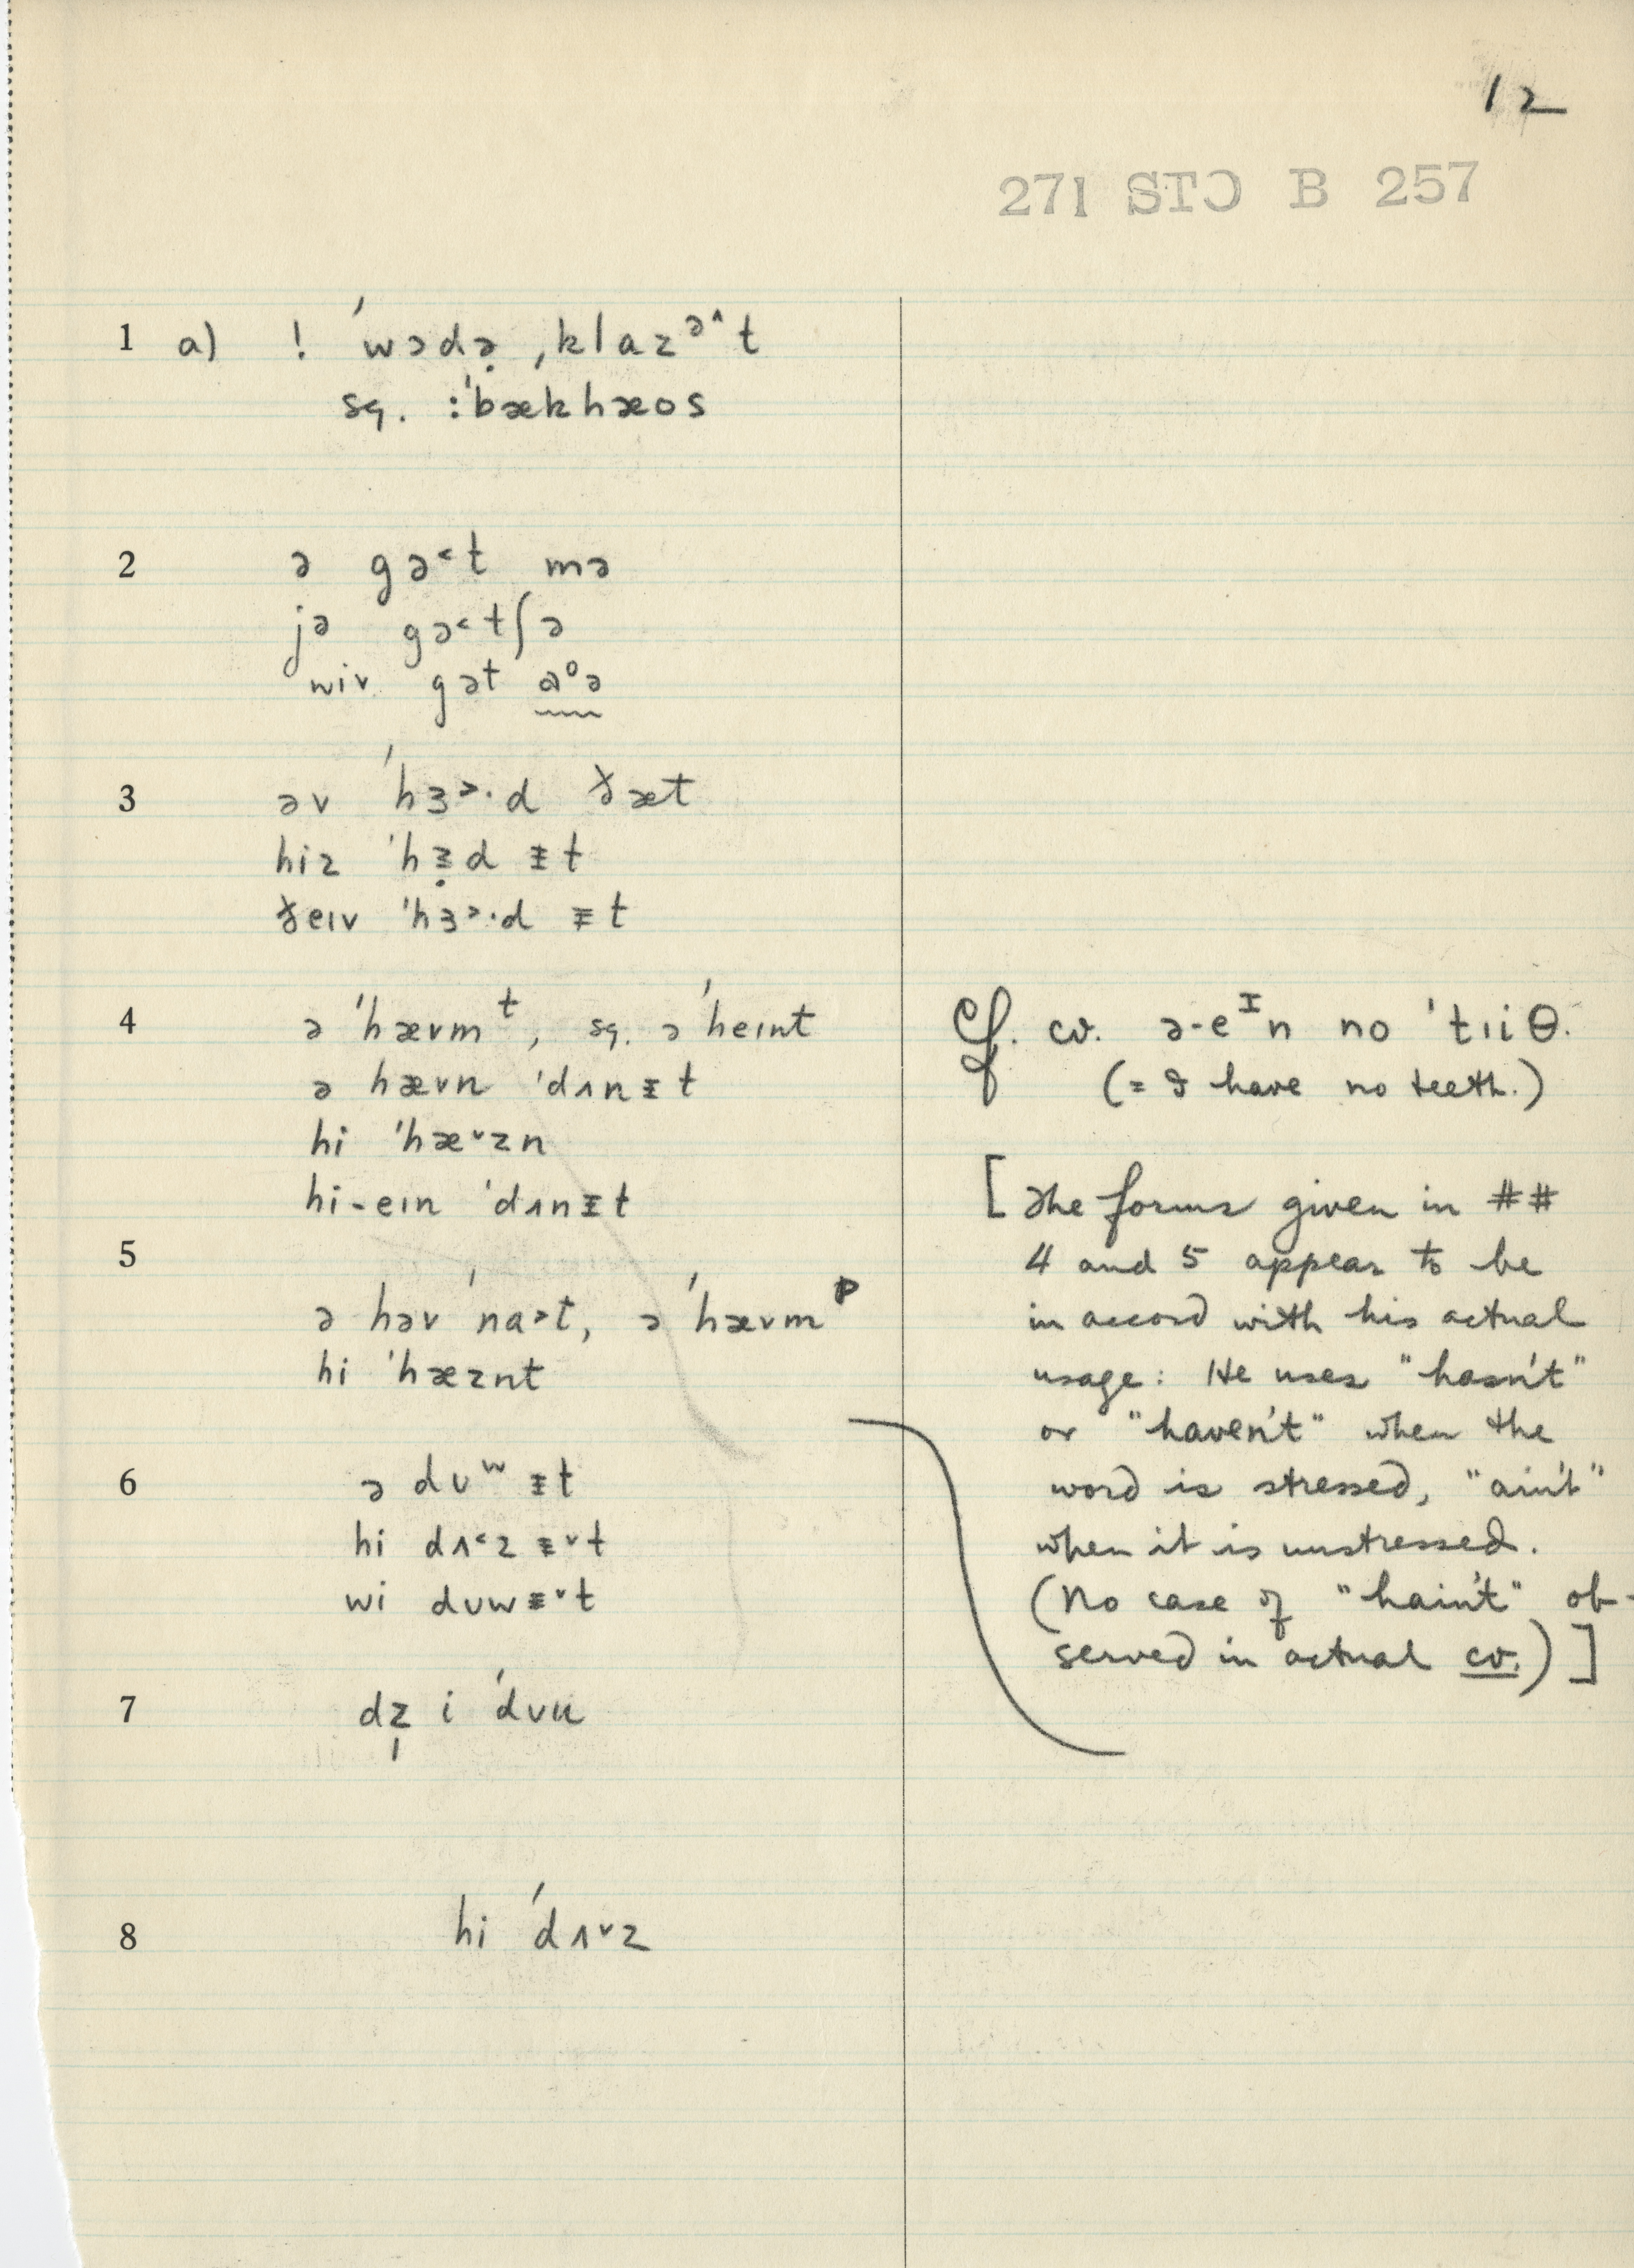 12
271 STC B 257
1 a) ! ˈwɔdə̣ ˌklazᵊ^t
sq. :ˈbækhæos
2 ə gɔ˂t mə
jə gɔ˂tʃə
wiv gɔt aᵒə
3 əv ˈhɜ˃·d ðæt
hiz ˈhɜ̣d ɨt
ðeɪv ˈhɜ˃·d ɨt
4 ə ˈhævmᵗ, sq. ə ˈheɪnt
ə hævn ˈdʌnɨt
hi ˈhæ˅zn
hi-eɪn ˈdʌnɨt
5
ə həv ˈna˃t, ə ˈhævmᵖ
hi ˈhæznt
6 ə dʊʷ ɨt
hi dʌ˂z ɨ˅t
wi dʊwɨ˅t
7 dz̩ i ˈdʊu
8 hi ˈdʌ˅z
Cf. cv. ə-eᴵn no ˈtɪiθ.
(= I have no teeth.)
[The forms given in ##
4 and 5 appear to be
in accord with his actual
usage: He uses "hasn't"
or "haven't" when the
word is stressed, "ain't"
when it is unstressed.
(No case of "hain't" ob-
served in actual cv.)]